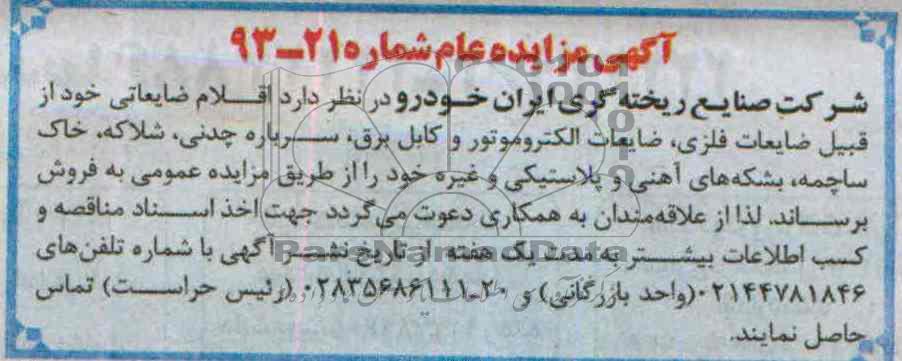 آگهی مزایده عام شماره ۲۱ــ۹۳
شرکت صنایع ریخته گری ایران خودرو در نظر دارد اقلام ضایعاتی خود از
قبیل ضایعات فلزی، ضایعات الکتروموتور و کابل برق، سرباره چدنی، شلاکه، خاک
ساچمه، بشکه‌های آهنی و پلاستیکی و غیره خود را از طریق مزایده عمومی به فروش
برساند. لذا از علاقه‌مندان به همکاری دعوت می‌گردد جهت اخذ اسناد مناقصه و
کسب اطلاعات بیشتر به مدت یک هفته از تاریخ نشر آگهی با شماره تلفن‌های
۰۲۱۴۴۷۸۱۸۴۶(واحد بازرگانی) و ۲۰-۰۲۸۳۵۶۸۶۱۱۱ (رئیس حراست) تماس
حاصل نمایند.
ParsNamadData